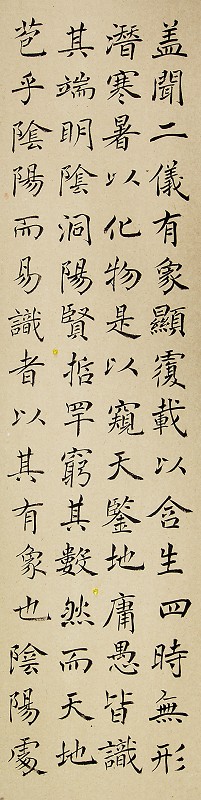 盖聞二儀有象顯覆載以含生四時無形
潛寒暑以化物是以窺天鑒地庸愚皆識
其端明陰洞陽賢哲罕窮其數然而天地
苞乎陰陽而易識者以其有象也陰陽處